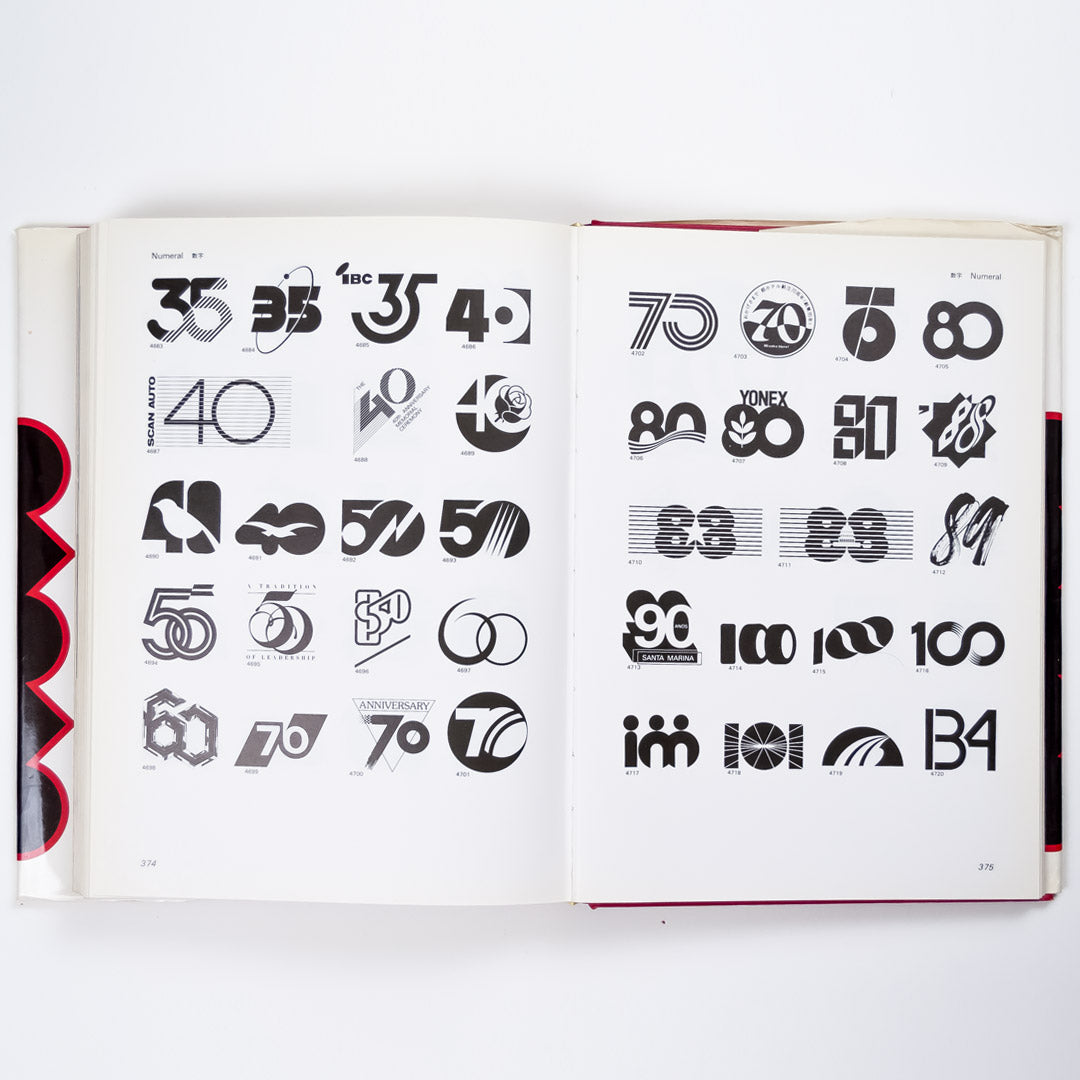 Numeral 数字
35
4683
35
4684
IBC 35
4685
40
4686
SCAN AUTO
40
4687
THE
40
40th ANNIVERSARY
MEMORIAL
CEREMONY
4688
40
4689
40
4690
40
4691
50
4692
50
4693
50
4694
A TRADITION
50
OF LEADERSHIP
4695
4696
4697
60
4698
70
4699
ANNIVERSARY
70
4700
70
4701
374
数字 Numeral
70
4702
70
4703
4704
80
4705
80
4706
YONEX
80
4707
80
4708
'88
4709
83
4710
89
4711
89
4712
90
ANOS
SANTA MARINA
4713
100
4714
100
4715
100
4716
100
4717
101
4718
4719
134
4720
375